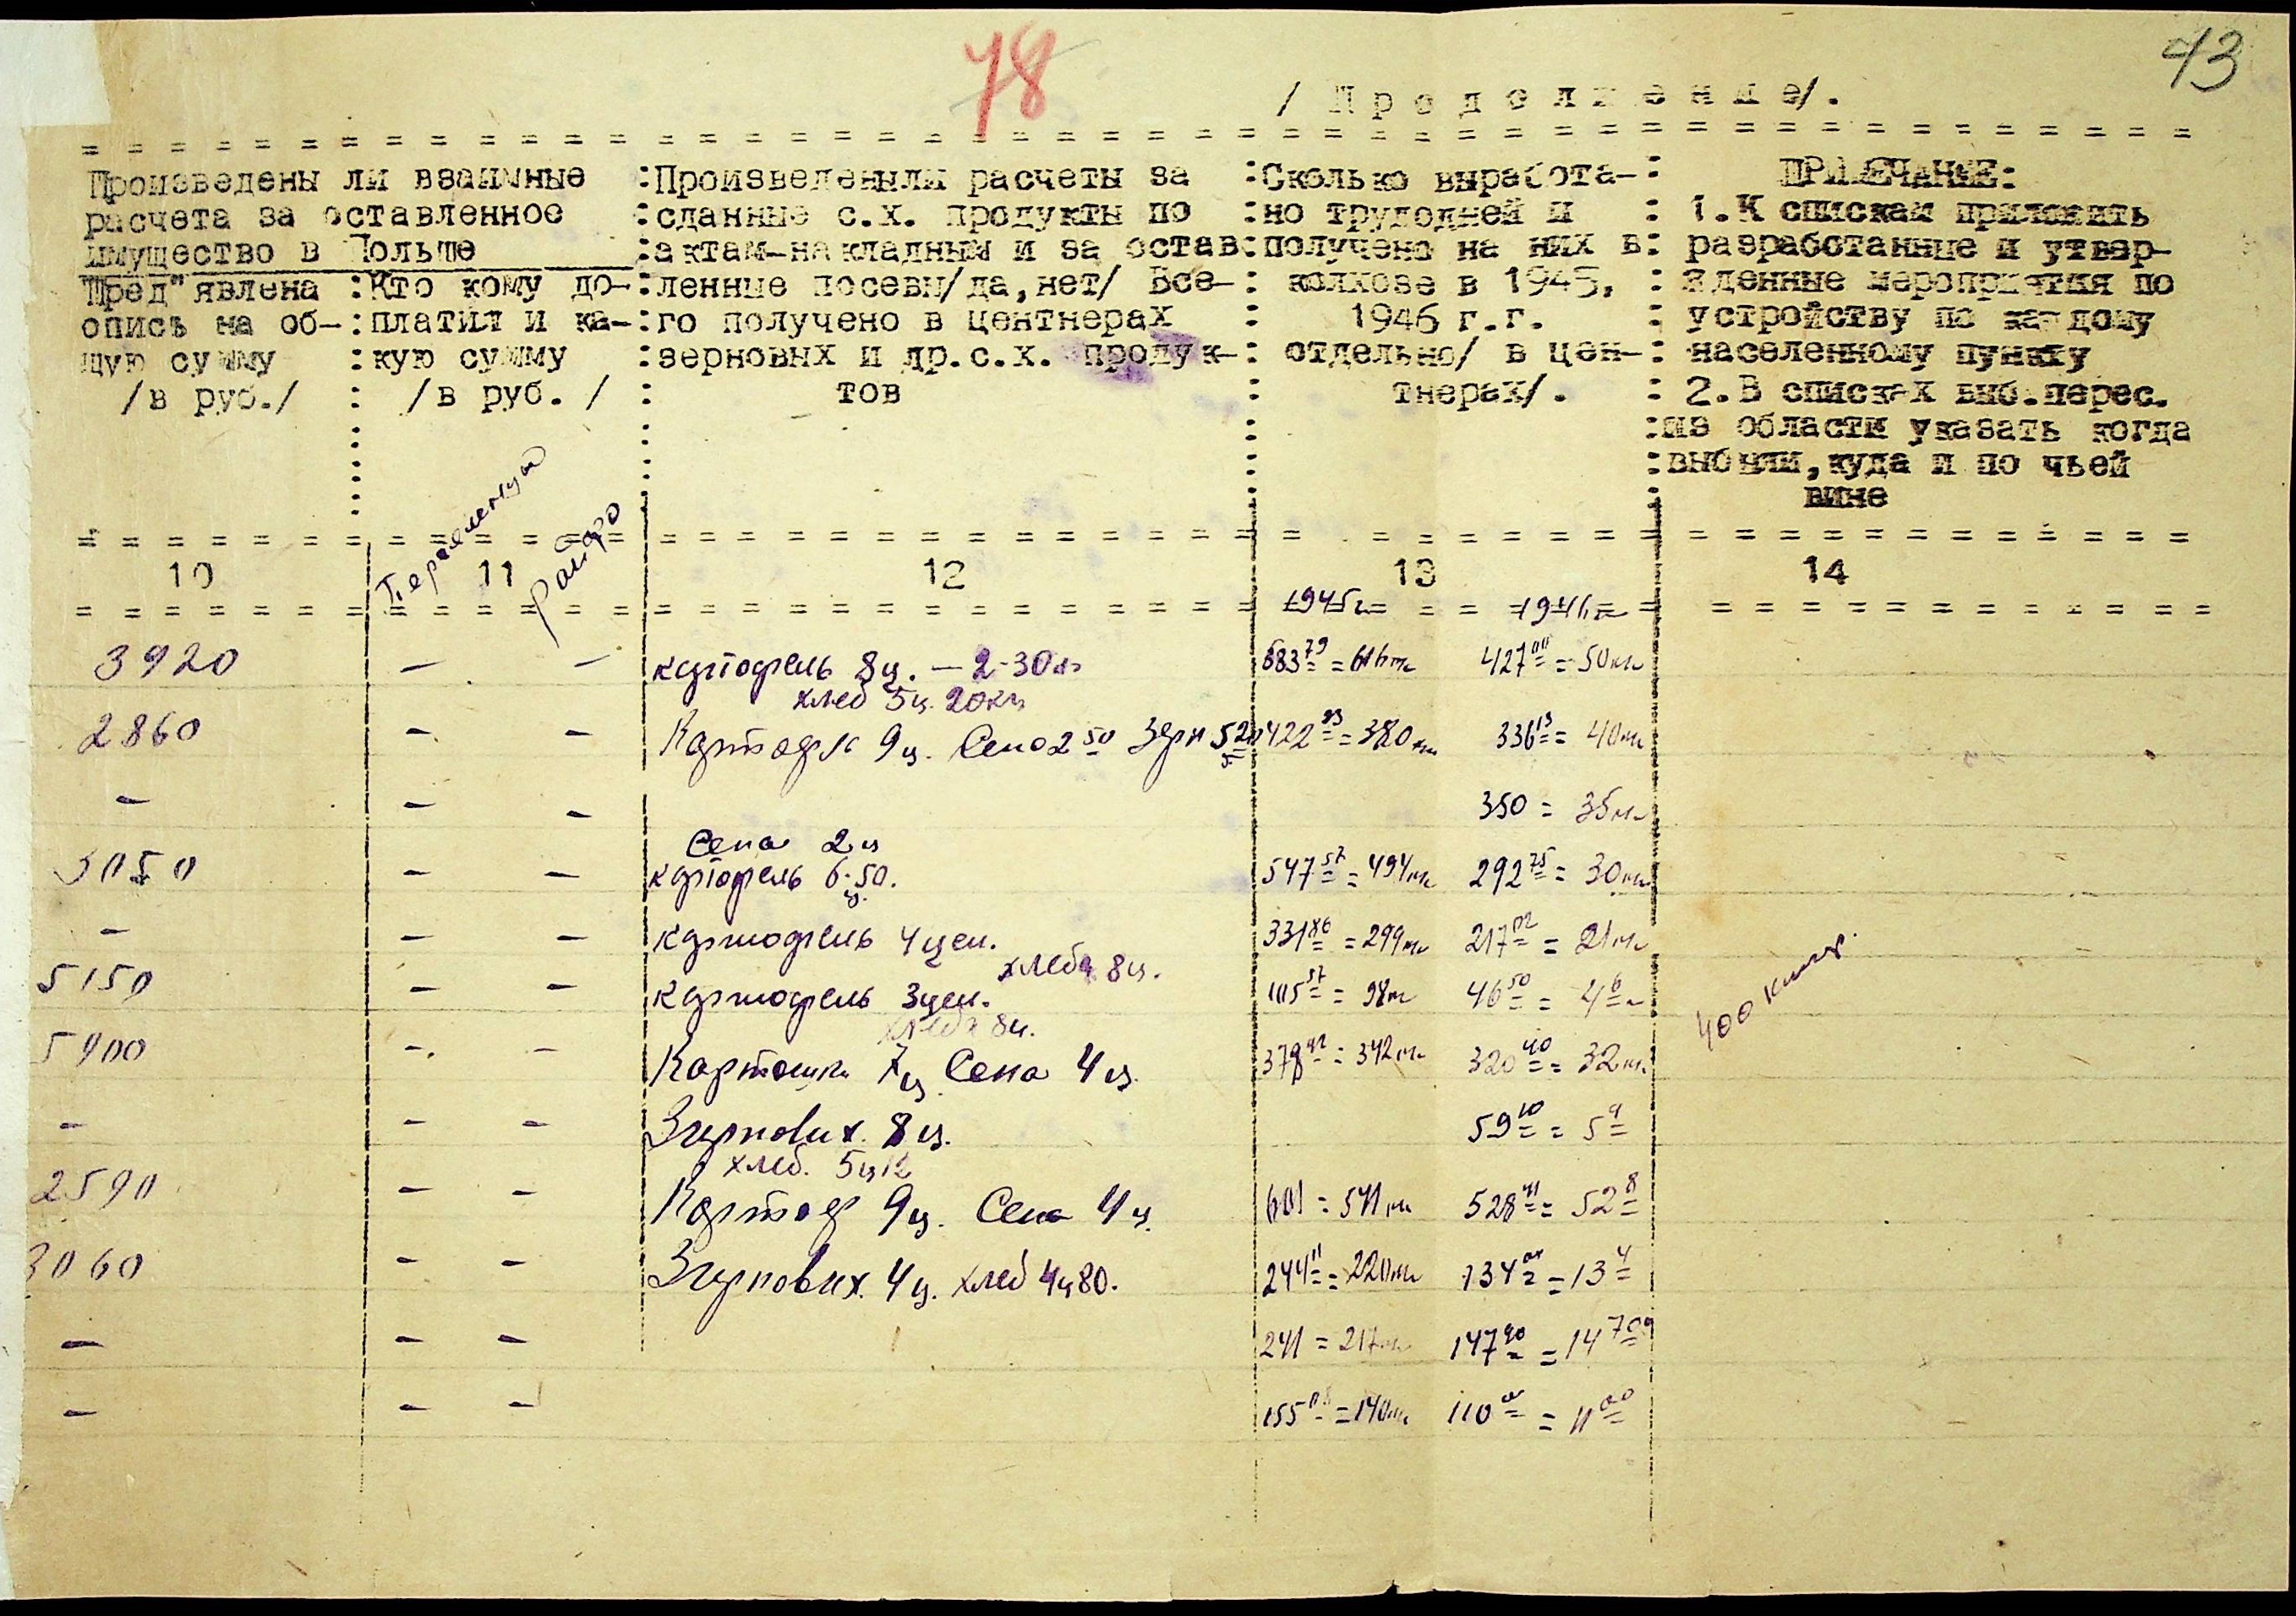 78
43
/ П р о д о л ж е н и е/.
Произведены ли взаимные
расчета за оставленное
имущество в Польше
Пред"явлена
опись на об-
щую сумму
/в руб./
Кто кому до-
платил и ка-
кую сумму
/в руб. /
Произведены ли расчеты за
сданные с.х. продукты по
актам-накладным и за остав
ленные посевы/да,нет/ Все-
го получено в центнерах
зерновых и др.с.х. продук-
тов
Сколько выработа-
но трудодней и
получено на них в
колхозе в 1945,
1946 г.г.
отдельно/ в цен-
тнерах/.
ПРИМЕЧАНИЕ:
1.К спискам приложить
разработанные и утвер-
жденные мероприятия по
устройству по каждому
населенному пункту
2.В списках выб.перес.
из области указать когда
выбыли,куда и по чьей
вине
10 11 12 13 14
1945г 1946г
3920 — — картофель 8ц. — 2-30 683 79 = 616кг 427 00 = 50кг
хлеб 5ц. 20кг
2860 — — Картофл 9ц. Сено 2 50 Зерн 52 422 93 = 380кг 336 13 = 40кг
— — — 350 = 35кг
Сена 2ц
3050 — — картофель 6-50. ц. 547 57 = 494кг 292 75 = 30кг
— — — картофель 4цен. 331 86 = 299кг 217 02 = 21кг
хлеба 8ц.
5150 — — картофель 3цен. 105 57 = 98кг 46 50 = 4 6
хлеба 8ц.
5900 — — Картошки 7ц Сена 4ц. 378 92 = 342кг 320 40 = 32кг
400 книг.
— — — Зернових. 8ц. 59 10 = 5 9
хлеб. 5ц12
2590 — — Картоф 9ц. Сена 4ц. 601 = 541кг 528 41 = 52 8
3060 — — Зернових. 4ц. хлеб 4ц80. 244 11 = 220кг 134 00 = 13 4
— — — 241 = 217кг 147 90 = 14 709
— — — 155 = 140кг 110 00 = 11 00